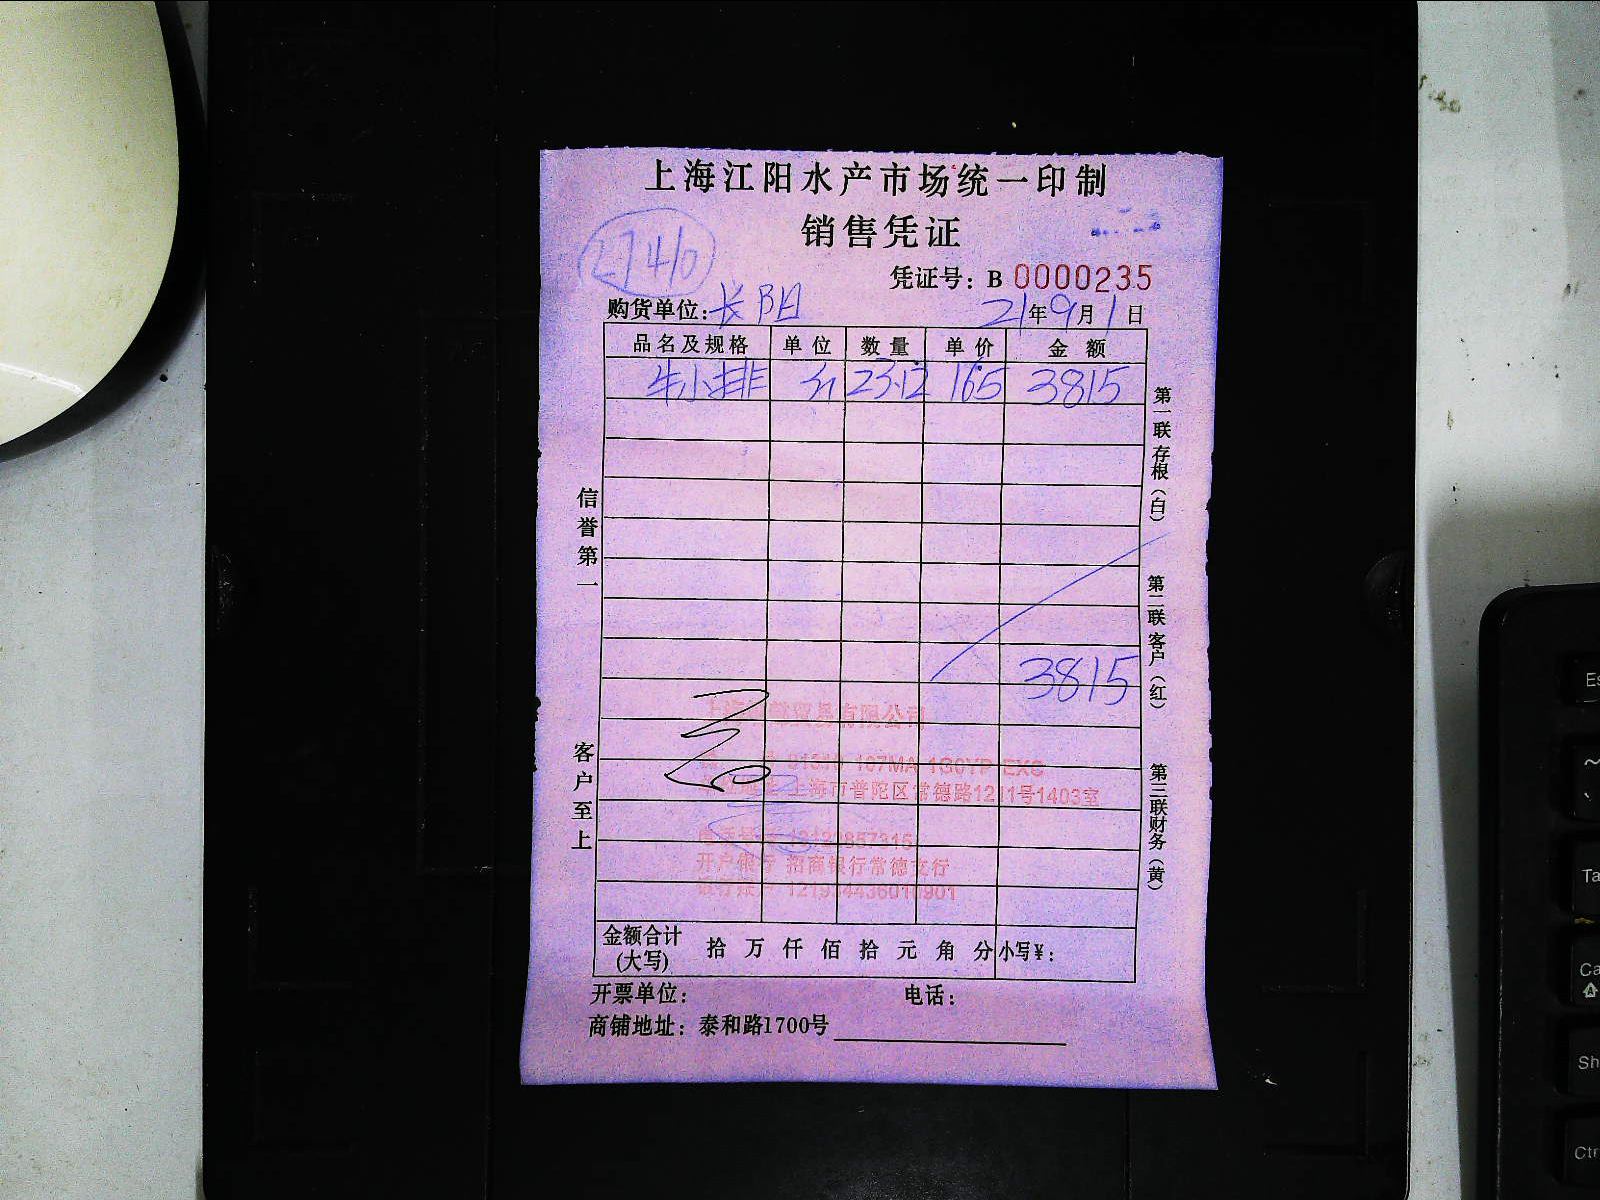 上海江阳水产市场统一印制
销售凭证
2746
凭证号：B 0000235
购货单位：长阳 21年9月1日
品名及规格 单位 数量 单价 金额
牛小排 斤 23.12 165 3815
3815
信誉第一
客户至上
第一联存根（白）
第二联客户（红）
第三联财务（黄）
上海 贸易有限公司
上海市普陀区常德路1211号1403室
开户银行 招商银行常德支行
金额合计(大写) 拾 万 仟 佰 拾 元 角 分 小写¥：
开票单位： 电话：
商铺地址：泰和路1700号
Es
Ta
Ca
Sh
Ctr